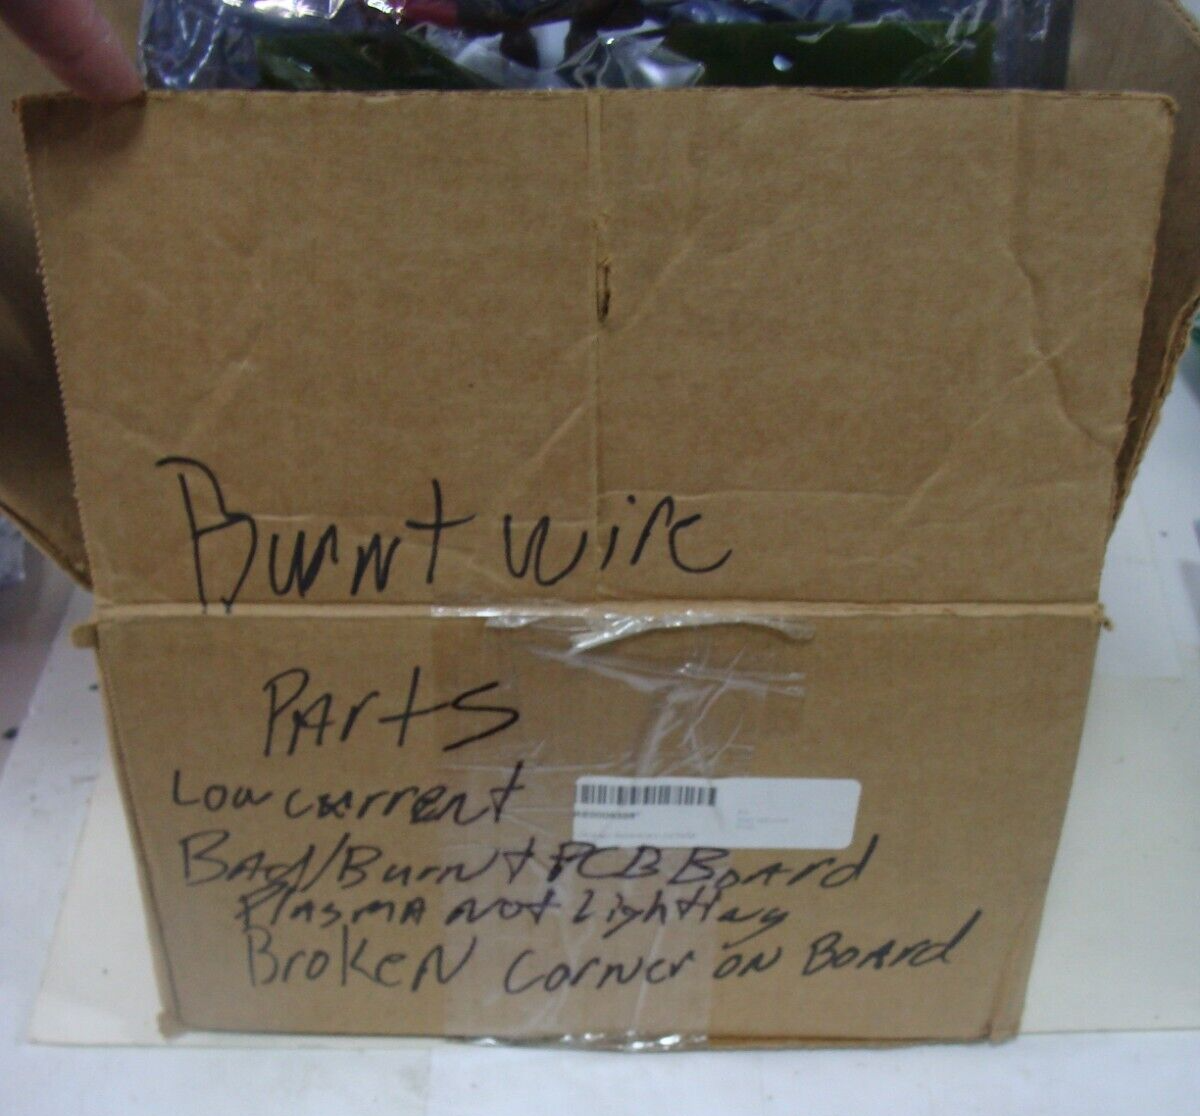 Burnt wire
Parts
Low current
Bad/Burnt PCB Board
Plasma not Lighting
Broken corner on Board